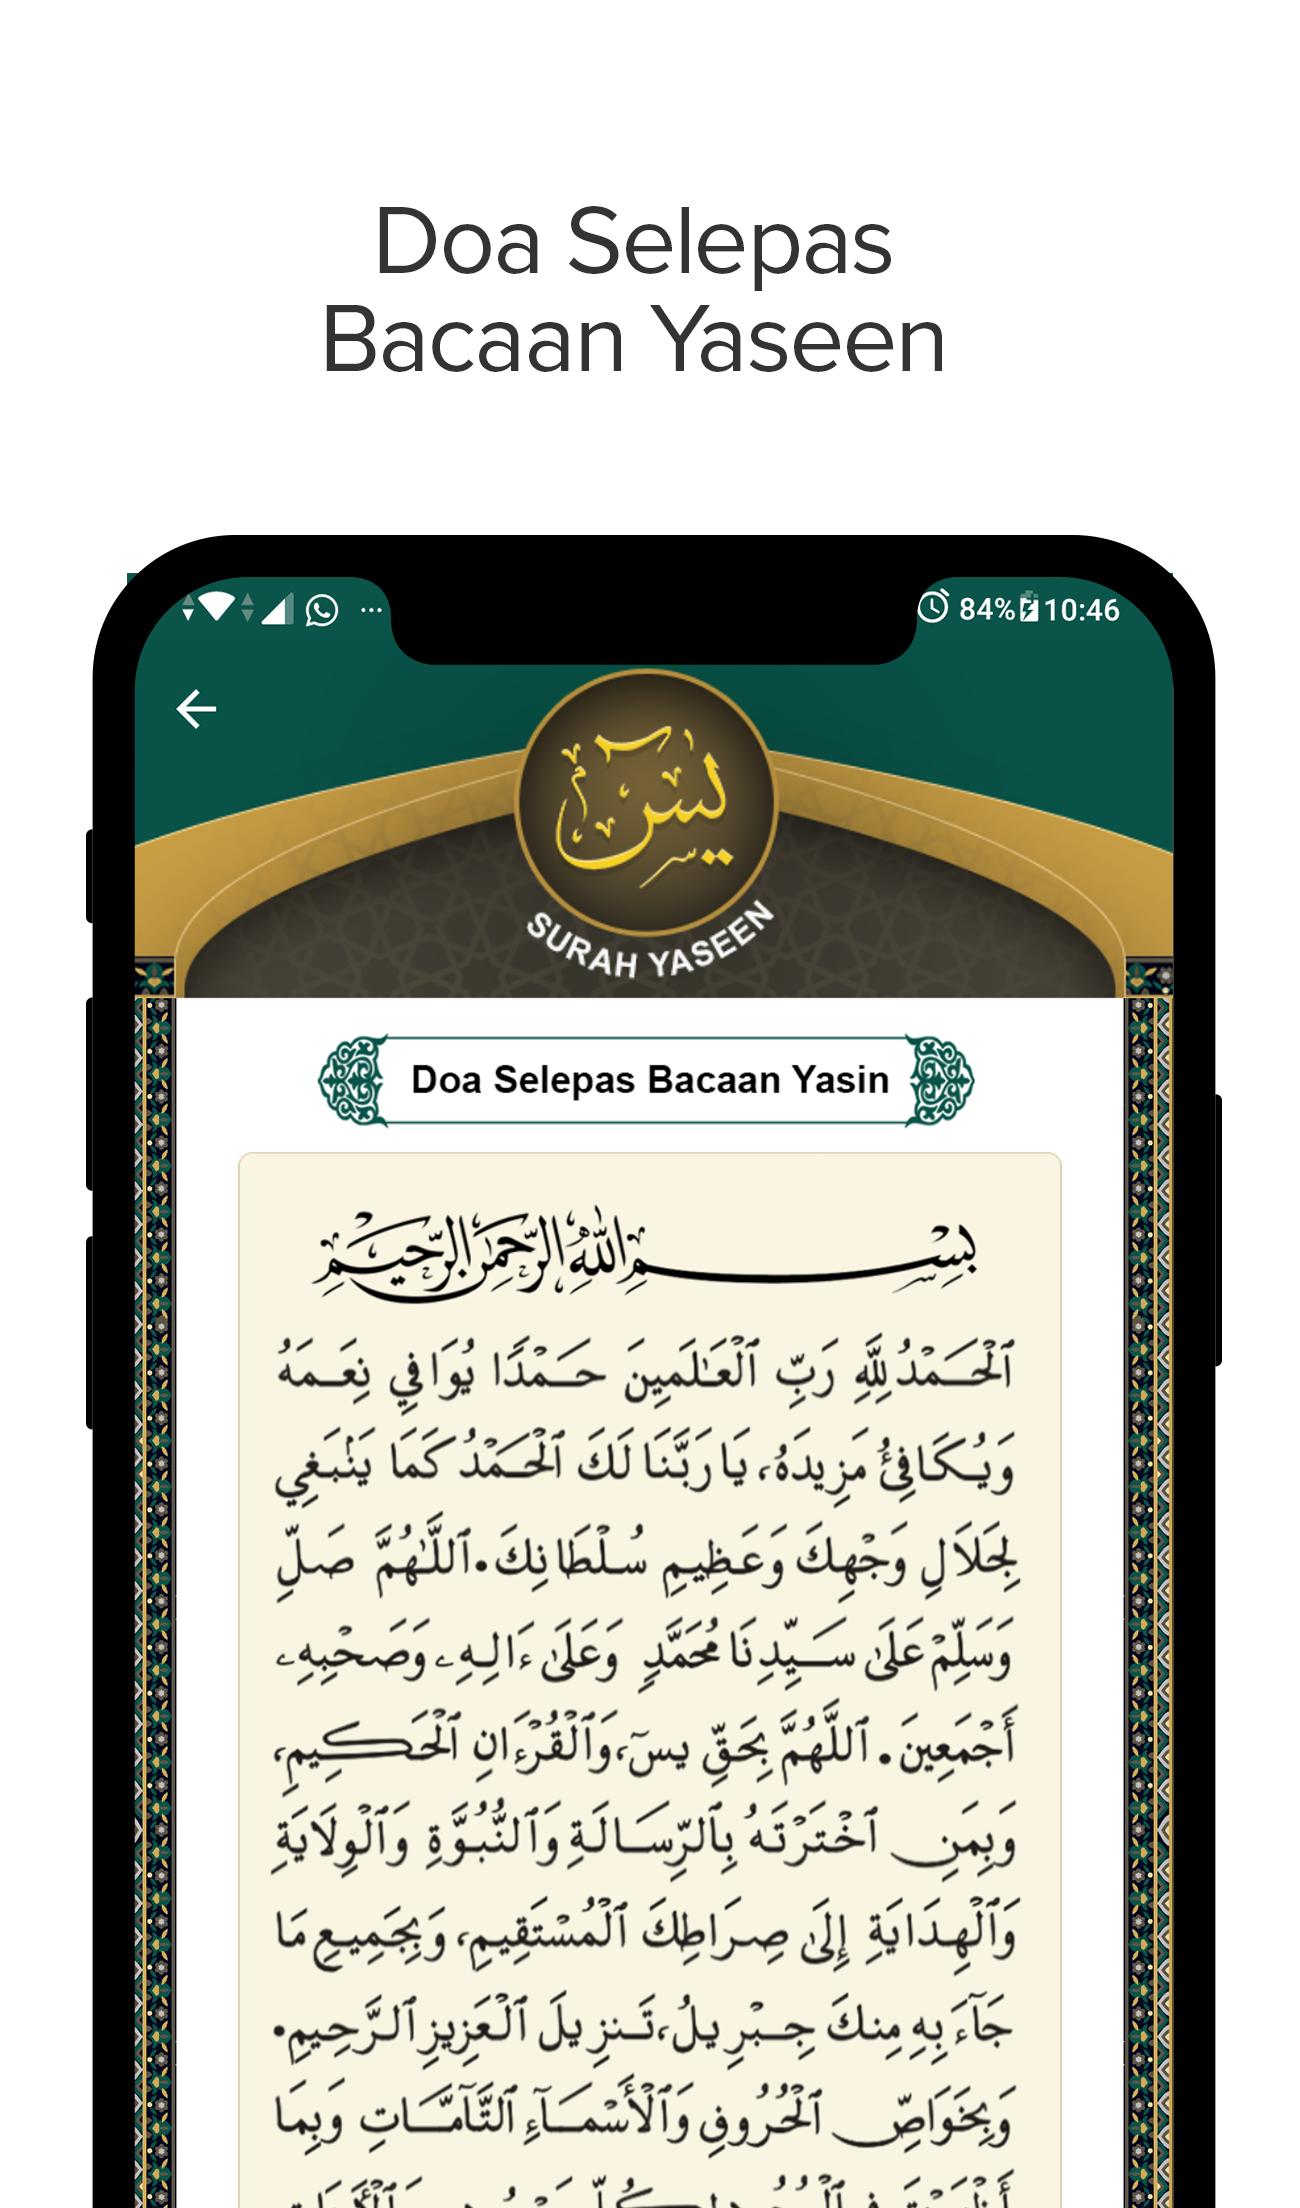 Doa Selepas
Bacaan Yaseen
84% 10:46
يسٓ
SURAH YASEEN
Doa Selepas Bacaan Yasin
بِسْمِ اللهِ الرَّحْمٰنِ الرَّحِيْمِ
ٱلْحَمْدُ لِلَّهِ رَبِّ ٱلْعَـٰلَمِينَ حَمْدًا يُوَافِي نِعَمَهُ
وَيُكَافِئُ مَزِيدَهُ، يَا رَبَّنَا لَكَ ٱلْحَمْدُ كَمَا يَنْبَغِي
لِجَلَالِ وَجْهِكَ وَعَظِيمِ سُلْطَانِكَ. ٱللَّهُمَّ صَلِّ
وَسَلِّمْ عَلَىٰ سَيِّدِنَا مُحَمَّدٍ وَعَلَىٰ ءَالِهِۦ وَصَحْبِهِۦ
أَجْمَعِينَ. ٱللَّهُمَّ بِحَقِّ يسٓ، وَٱلْقُرْءَانِ ٱلْحَكِيمِ،
وَبِمَنِ ٱخْتَرْتَهُ بِٱلرِّسَالَةِ وَٱلنُّبُوَّةِ وَٱلْوِلَايَةِ
وَٱلْهِدَايَةِ إِلَىٰ صِرَاطِكَ ٱلْمُسْتَقِيمِ، وَبِجَمِيعِ مَا
جَآءَ بِهِ مِنكَ جِبْرِيلُ، تَنزِيلَ ٱلْعَزِيزِ ٱلرَّحِيمِ.
وَبِخَوَاصِّ ٱلْحُرُوفِ وَٱلْأَسْمَآءِ ٱلتَّآمَّاتِ وَبِمَا